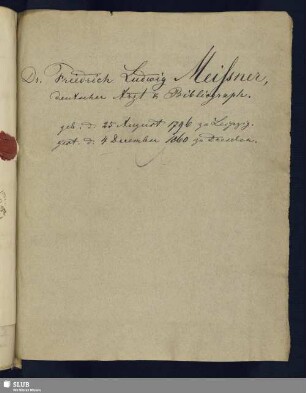 Dr. Friedrich Ludwig Meißner,
deutscher Arzt & Bibliograph.
geb: d. 25 August 1796 zu Leipzig.
gest. d. 4 December 1860 zu Dresden.
SLUB
Wir führen Wissen.